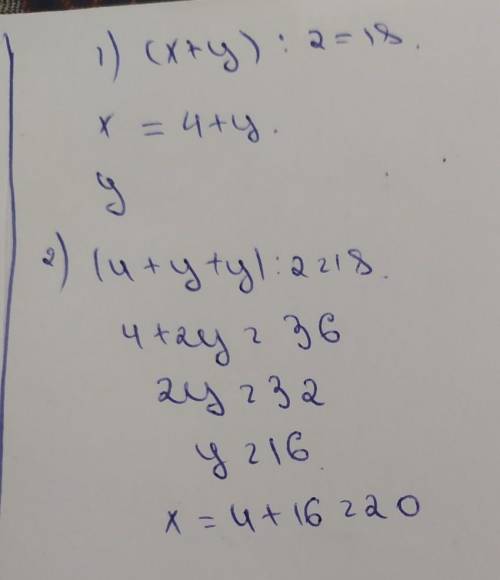 1) (x+y) : 2 = 18.
x = 4+y.
y
2) (4+y+y) : 2 = 18.
4+2y = 36
2y = 32
y = 16.
x = 4+16 = 20